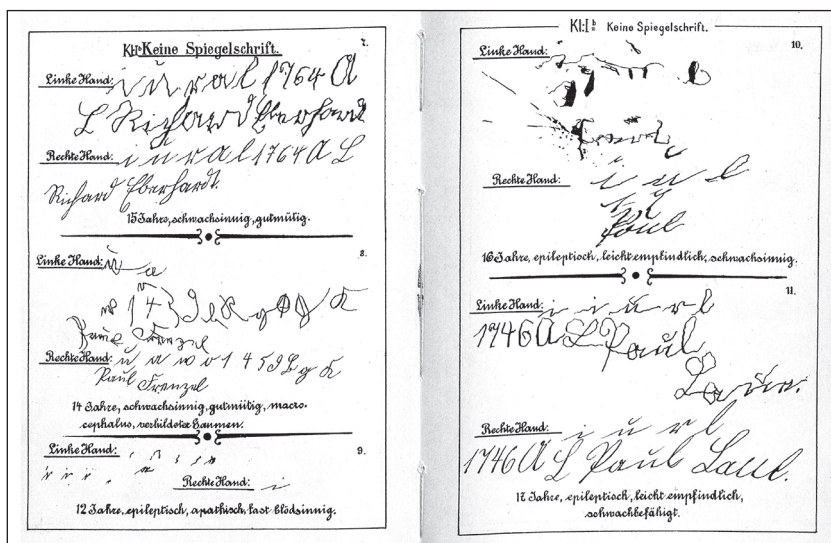 Kl: I a Keine Spiegelschrift.
7.
Linke Hand: i u r a l 1764 A
L Richard Eberhardt
Rechte Hand: i u r a l 1764 A L
Richard Eberhardt.
15 Jahre, schwachsinnig, gutmütig.
8.
Linke Hand: u
a
w 1 4
Paul Frenzel
Rechte Hand: u a w o 1 4 5 9 L g K
Paul Frenzel
14 Jahre, schwachsinnig, gutmütig, macro-
cephalus, verbildeter Gaumen.
9.
Linke Hand:
Rechte Hand: i
12 Jahre, epileptisch, apathisch, fast blödsinnig.
Kl: I b Keine Spiegelschrift.
10.
Linke Hand:
Rechte Hand: i u l
Paul
16 Jahre, epileptisch, leicht empfindlich, schwachsinnig.
11.
Linke Hand: i i u r l
1746 A L Paul
Rechte Hand: i u r l
1746 A L Paul Laul.
17 Jahre, epileptisch, leicht empfindlich,
schwachbefähigt.